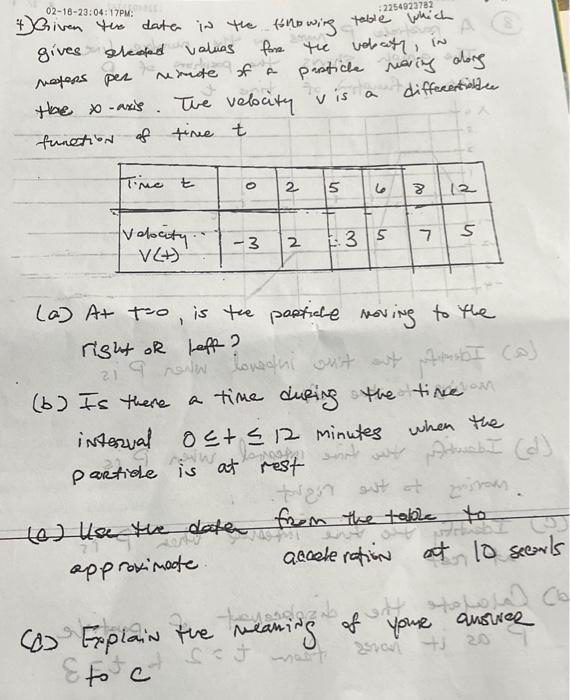 02-16-23:04:17PM; :2254923782
7) Given the data in the following table which
gives selected values for the velocity, in
meters per minute of a particle moving along
the x-axis. The velocity v is a differentiable
function of time t
Time t 0 2 5 6 8 12
Velocity V(t) -3 2 3 5 7 5
(a) At t=0, is the particle moving to the
right or left?
(b) Is there a time during the time
interval 0 ≤ t ≤ 12 minutes when the
particle is at rest
(c) Use the data from the table to
approximate acceleration at 10 seconds
(d) Explain the meaning of your answer
to c